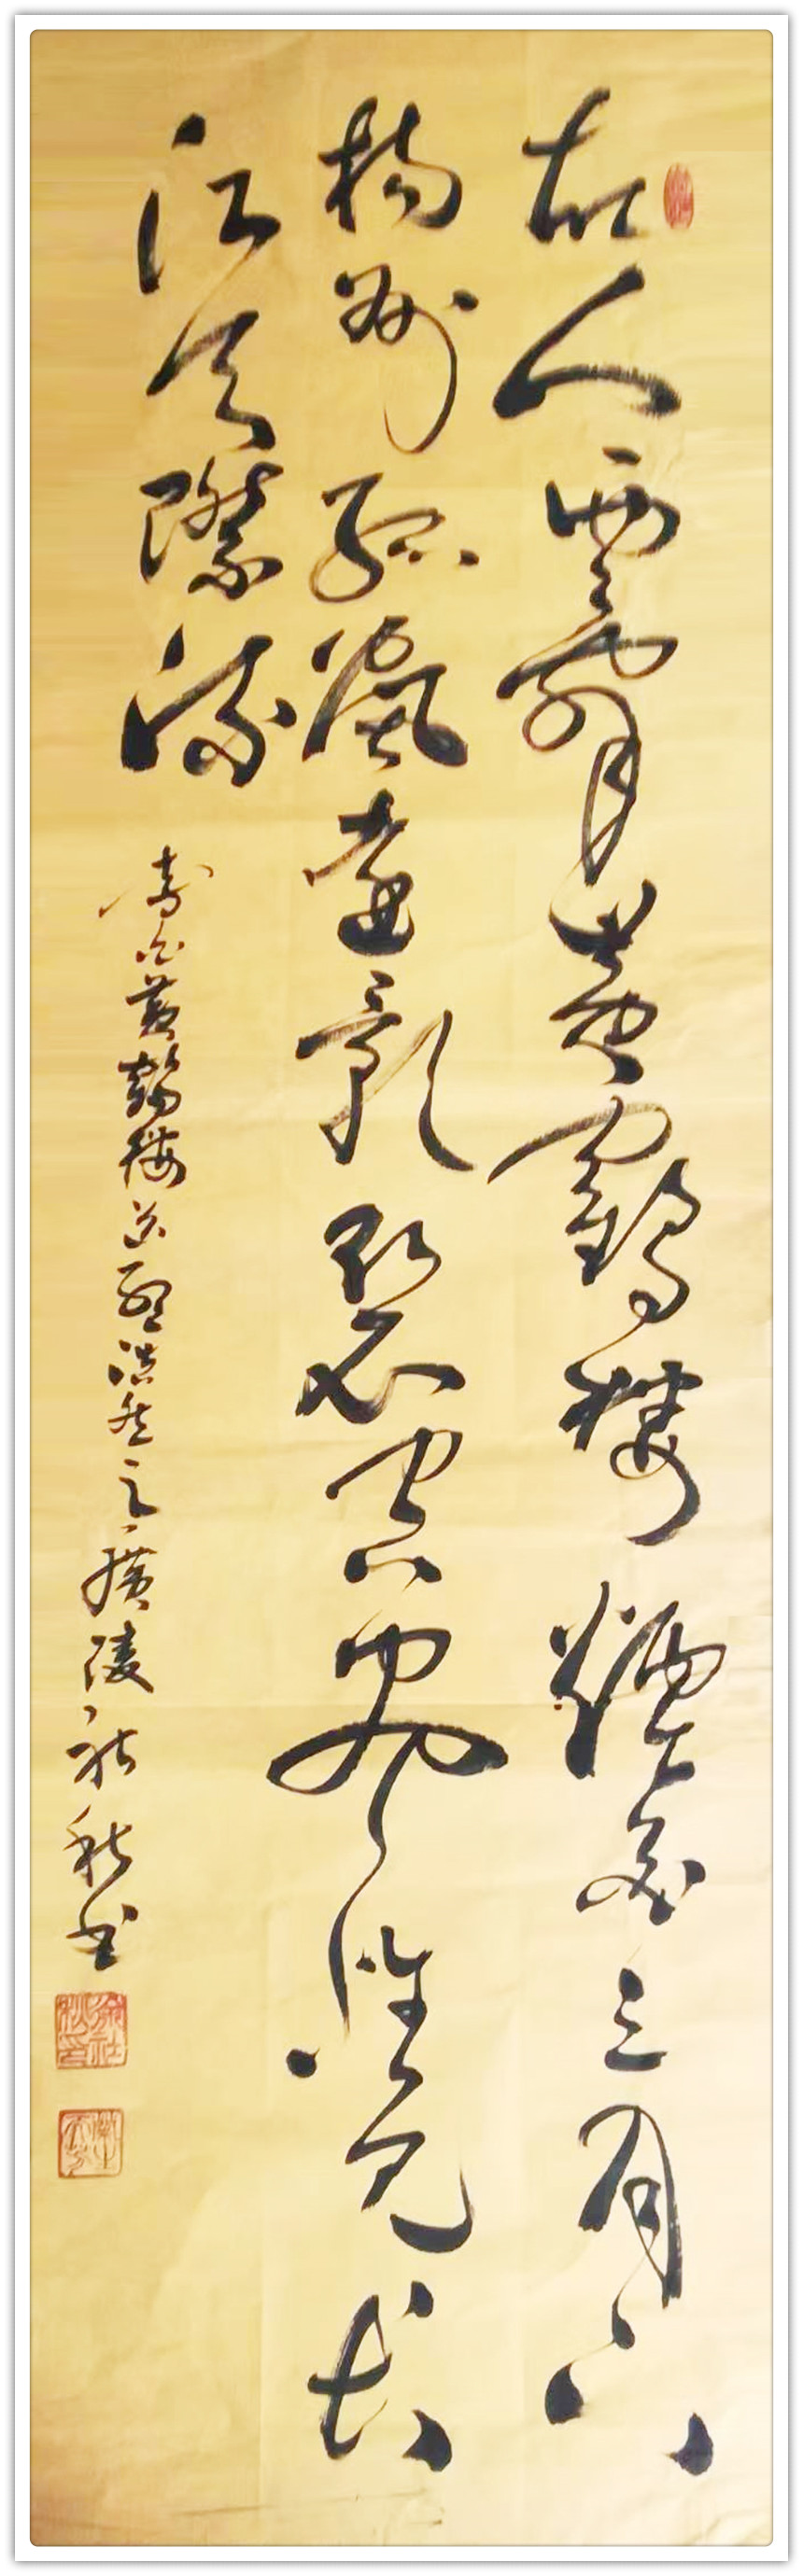 故人西辭黃鶴樓煙花三月下
揚州孤帆遠影碧空盡唯見長
江天際流
李白黃鶴樓送孟浩然之廣陵社秋書